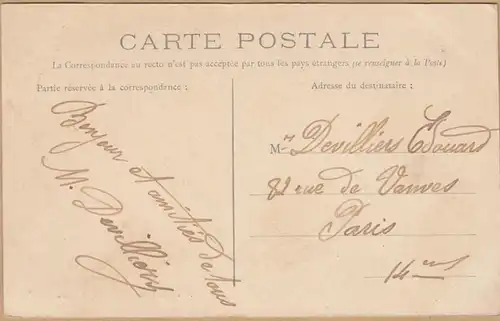 CARTE POSTALE
La Correspondance au recto n'est pas acceptée par tous les pays étrangers (se renseigner à la Poste)
Partie réservée à la correspondance :
Bonjour et amitiés de tous
M. Devilliers
Adresse du destinataire :
Mrs Devilliers Edouard
82 rue de Vanves
Paris
14ems